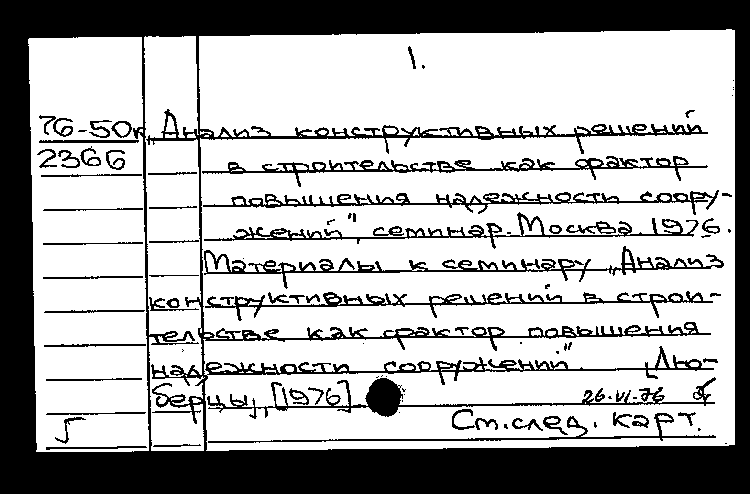 1.
76-50к „Анализ конструктивных решений
2366 в строительстве как фактор
повышения надежности соору-
жений", семинар. Москва. 1976.
Материалы к семинару „Анализ
конструктивных решений в строи-
тельстве как фактор повышения
надежности сооружений". [Лю-
берцы], [1976]
26.VI.76
5 См. след. карт.